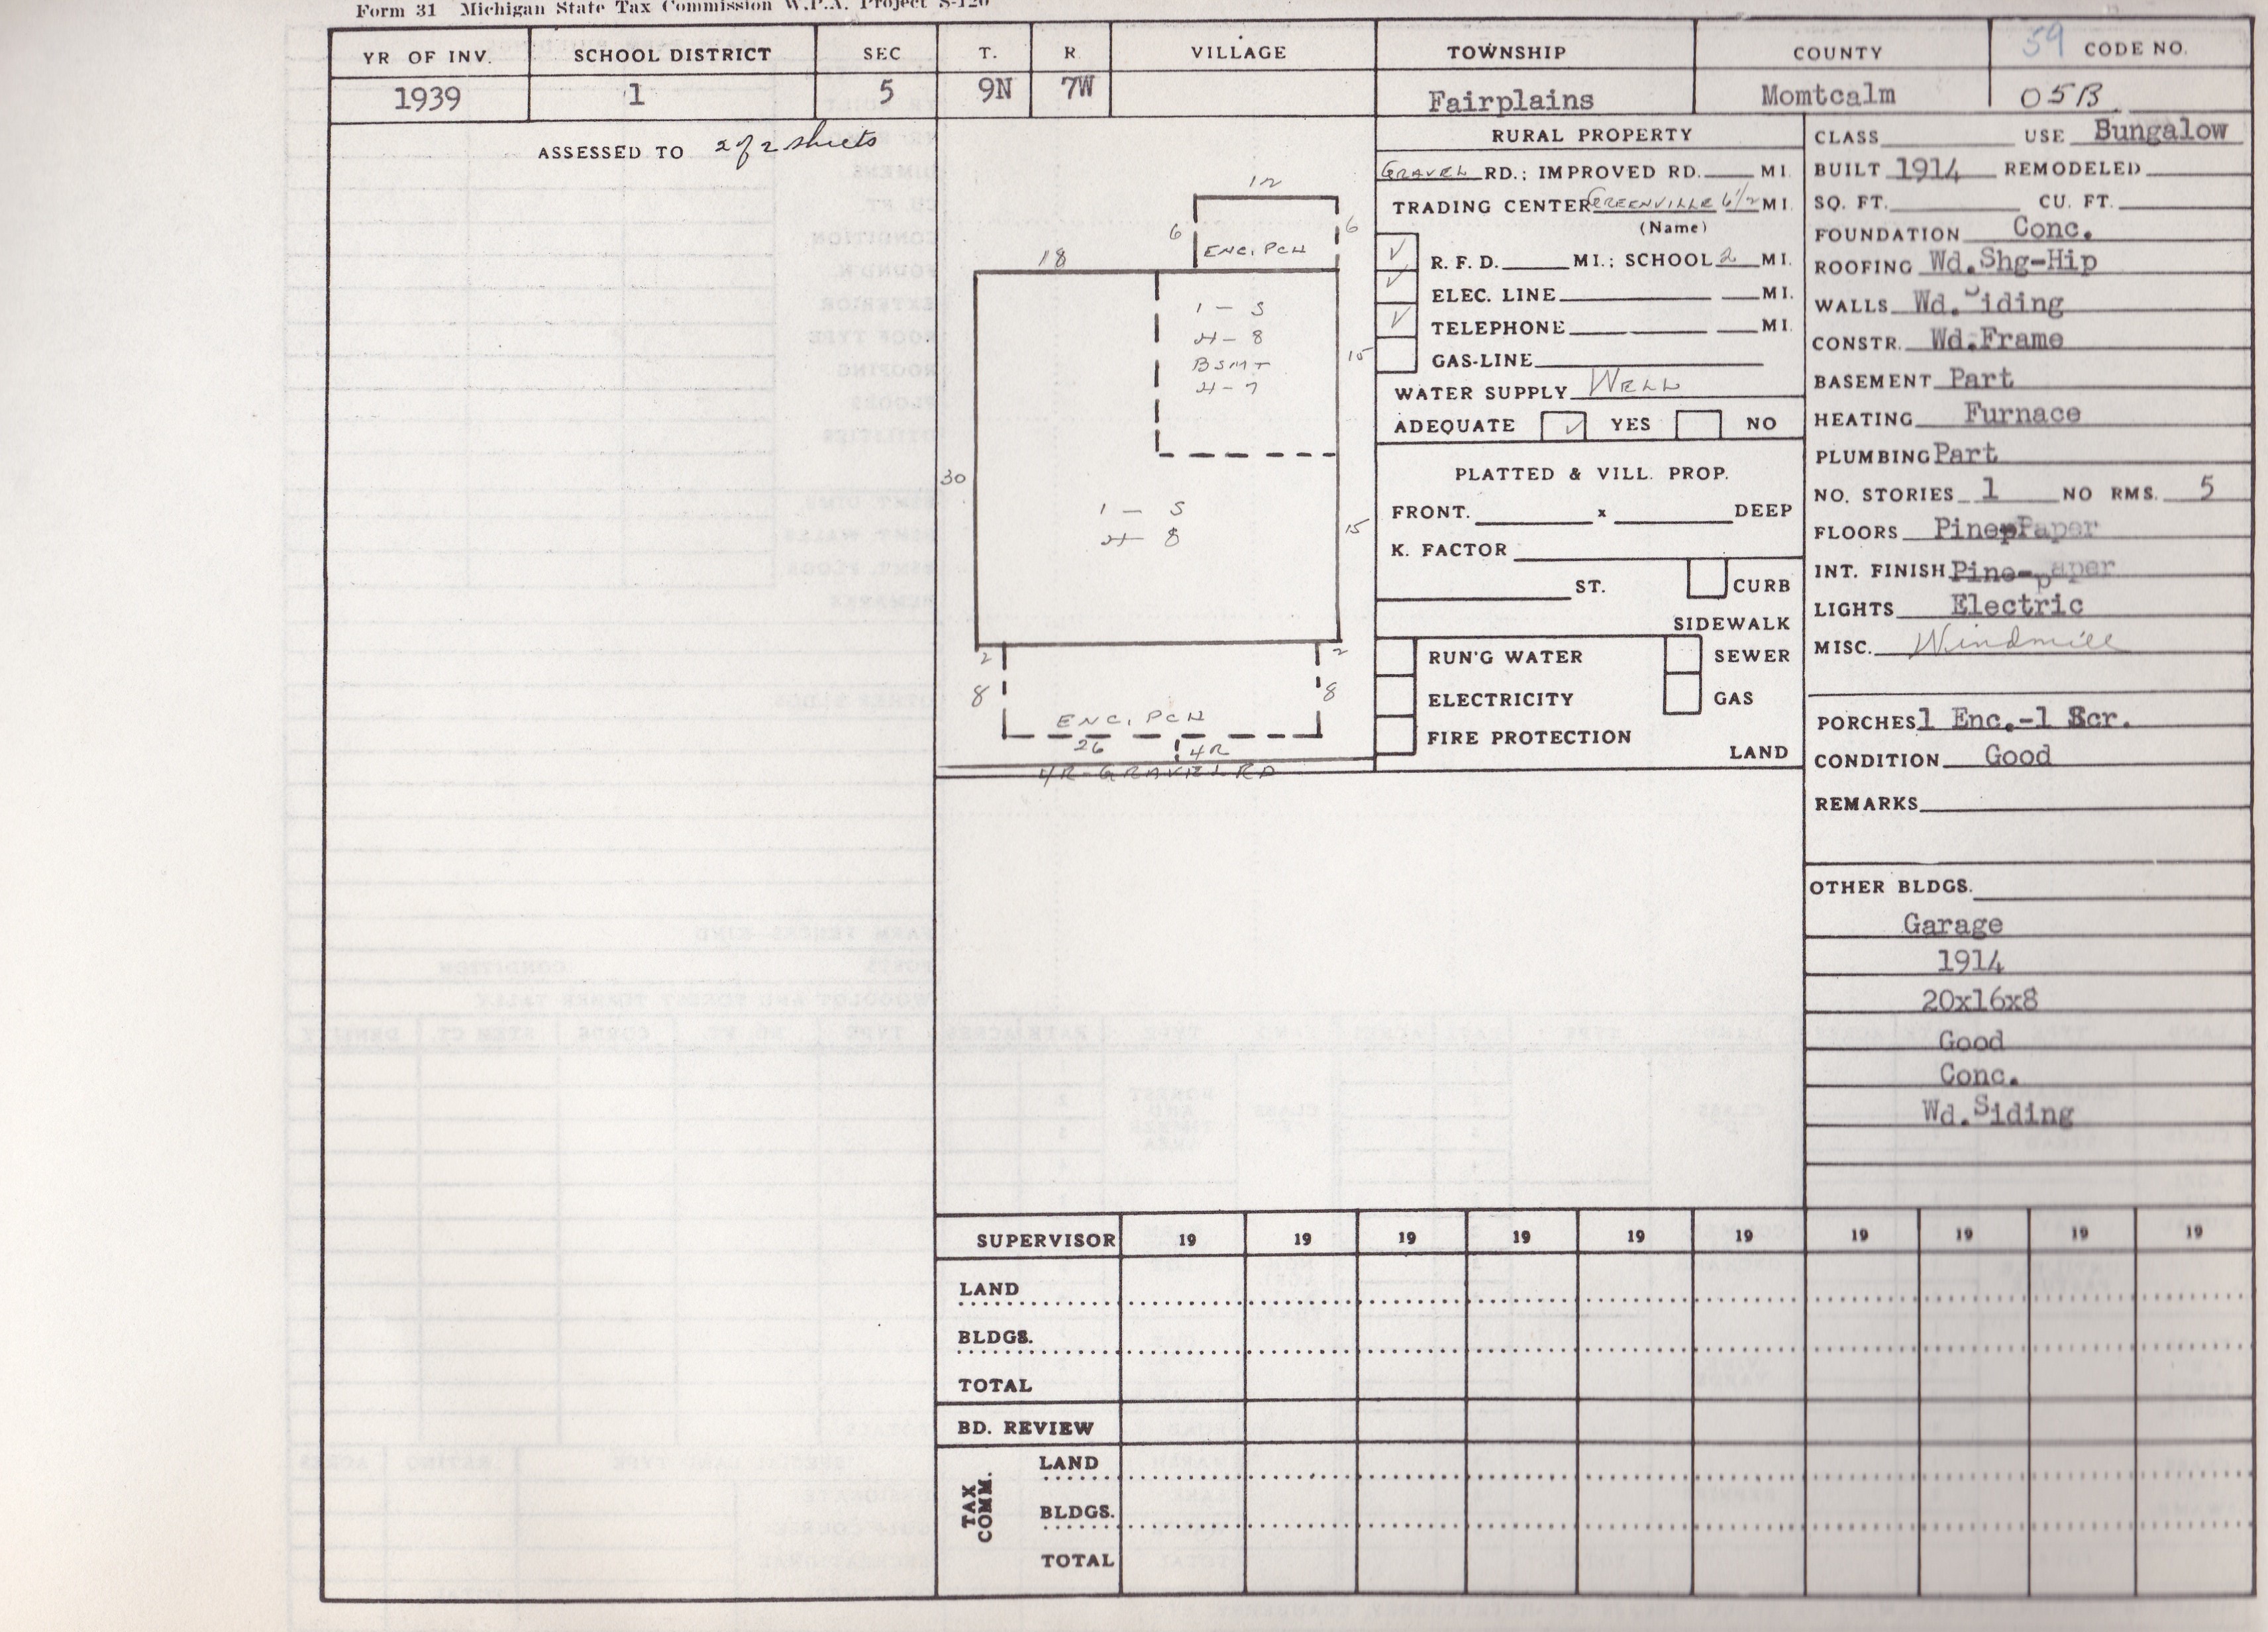 Form 31 Michigan State Tax Commission W.P.A. Project S-120
YR OF INV. SCHOOL DISTRICT SEC T. R VILLAGE TOWNSHIP COUNTY 59 CODE NO.
1939 1 5 9N 7W Fairplains Momtcalm 05B
ASSESSED TO 2 of 2 sheets
12
6 6
ENC. PCH
18
1 - S
H - 8
BSMT
H - 7
15
30
1 - S
H 8
15
2 2
8 8
ENC. PCH
26 4R
4R-GRAVEL RD
RURAL PROPERTY
GRAVEL RD.: IMPROVED RD. MI.
TRADING CENTER GREENVILLE 6 1/2 MI.
(Name)
✓ R. F. D. MI.; SCHOOL 2 MI.
✓ ELEC. LINE MI.
✓ TELEPHONE MI.
GAS-LINE
WATER SUPPLY WELL
ADEQUATE ✓ YES NO
PLATTED & VILL. PROP.
FRONT. x DEEP
K. FACTOR
ST. CURB
SIDEWALK
RUN'G WATER SEWER
ELECTRICITY GAS
FIRE PROTECTION
LAND
CLASS USE Bungalow
BUILT 1914 REMODELED
SQ. FT. CU. FT.
FOUNDATION Conc.
ROOFING Wd.Shg-Hip
WALLS Wd.Siding
CONSTR. Wd.Frame
BASEMENT Part
HEATING Furnace
PLUMBING Part
NO. STORIES 1 NO RMS. 5
FLOORS Pine-Paper
INT. FINISH Pine-paper
LIGHTS Electric
MISC. Windmill
PORCHES 1 Enc.-1 Scr.
CONDITION Good
REMARKS
OTHER BLDGS.
Garage
1914
20x16x8
Good
Conc.
Wd.Siding
SUPERVISOR 19 19 19 19 19 19 19 19 19 19
LAND
BLDGS.
TOTAL
BD. REVIEW
TAX COMM.
LAND
BLDGS.
TOTAL